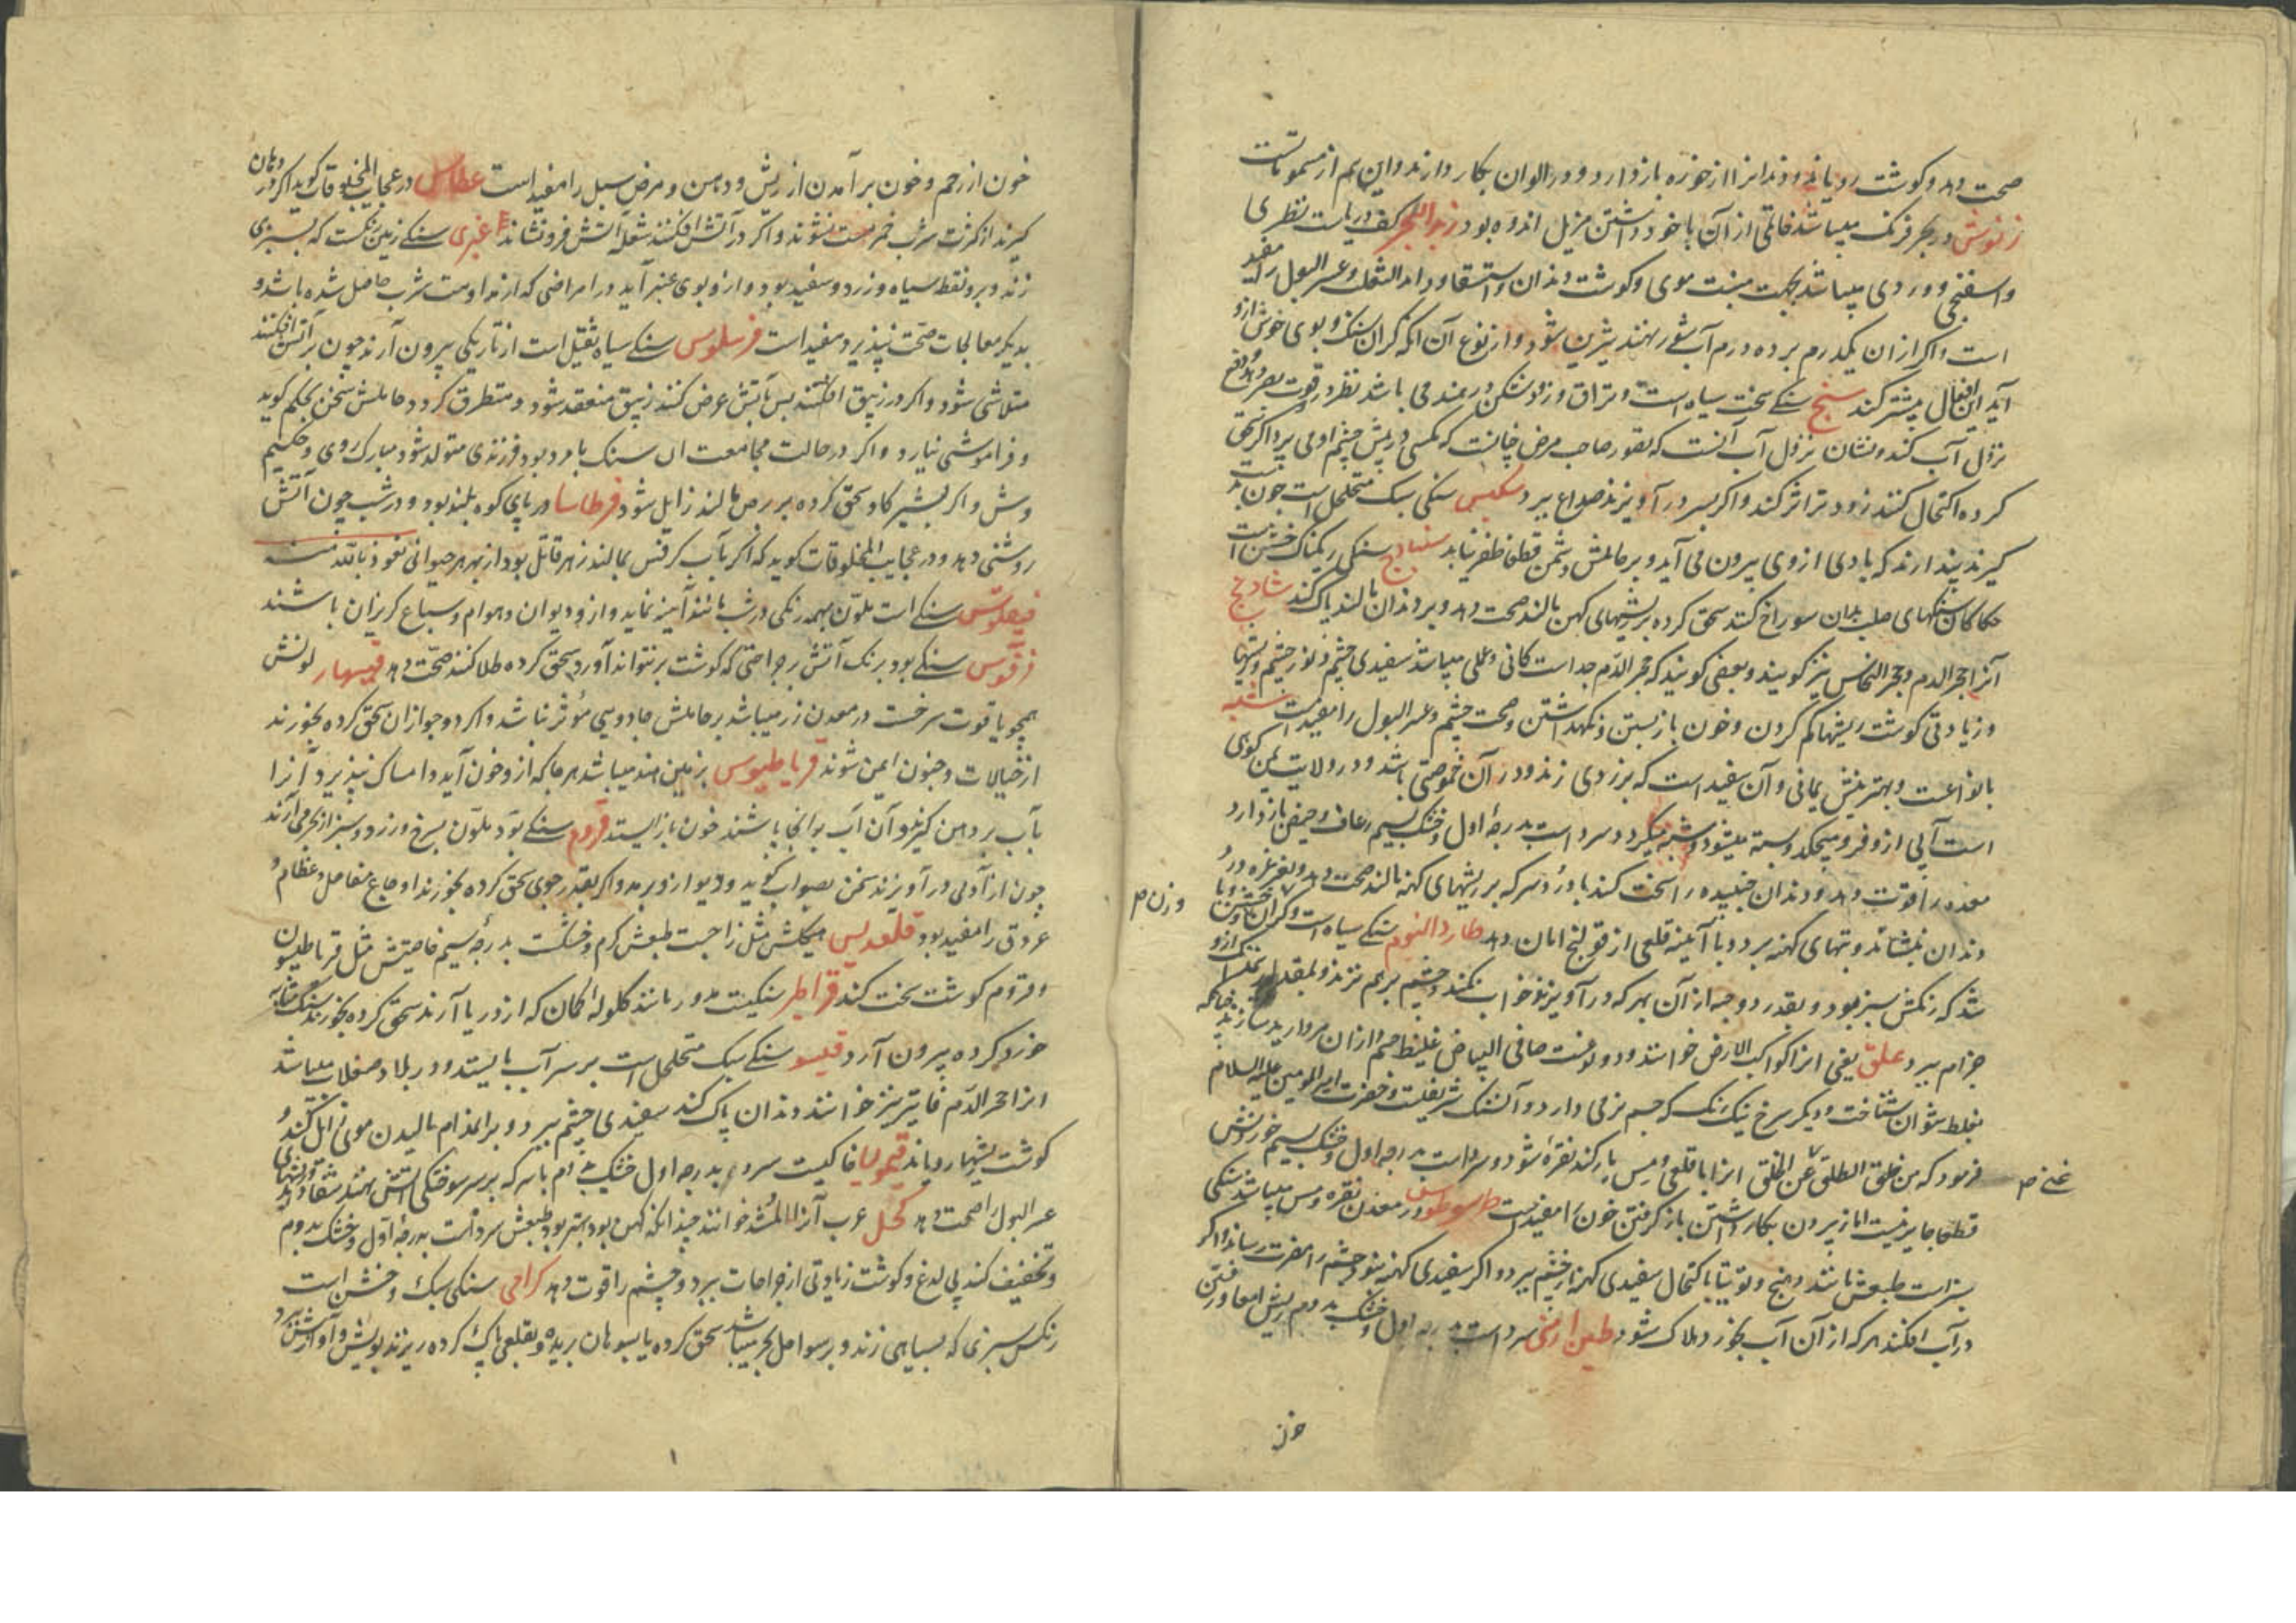 صحت دهد و کوشت رویاند و دندانرا از خوره باز دارد و در الوان بکار دارند و این هم از مسمومات است
زنوش در بحر فرنک میباشد خاتمی از آن با خود داشتن مزیل اندوه بود زبد البحر کف دریاست نظری
و اسفنجی و وردی میباشد بجهت منبت موی و کوشت دندان و استسقا و داء الثعلب و عسر البول را مفید
است و اکر از ان یکدرم بر ده درم آب شور نهند شیرین شود و از نوع آن آنکه کران سنک و بوی خوش ازو
آید این افعال بیشتر کند سبج سنکی سخت سیاه است و براق و زود شکن در هند می باشد نظر در و قوت بصر دهد و دفع
نزول آب کند و نشان نزول آب آنست که تصور صاحب مرض چنانست که مکسی در پیش چشم او می پرد اکر سحق
کرده اکتحال کنند زودتر اثر کند و اکر بسر در آویزند صداع ببرد سکبس سنکی سبک متخلخل است چون بدست
کیرند پندارند که بادی از وی بیرون می آید و بر حاملش دشمن قطعا ظفر نیابد سنبادج سنکی ریکناک خشن است
حکاکان سنکهای صلب بدان سوراخ کنند سحق کرده بر ریشهای کهن مالند صحت دهد و بر دندان مالند پاک کند شادنج
آنرا حجر الدم و حجر النحاس نیز کویند و بعضی کویند که حجر الدم جداست کانی و عملی میباشد سفیدی چشم و نور چشم و ریشها
و زیادتی کوشت ریشها کم کردن و خون باز بستن و نکهداشتن و صحت چشم و عسر البول را مفید است شبه
بانواعست و بهترینش یمانی و آن سفید است که بزردی زند و در آن حموضتی باشد و در ولایت یمن کوهی
است آبی ازو فرو میچکد و بسته میشود و شبه میکردد سرد است بدرجهٔ اول و خشک بسیم رعاف و حیض باز دارد
معده را قوت دهد و دندان جنبیده را سخت کند با درد سرکه بر ریشهای کهنه مالند صحت دهد و بغرغره درد
دندان بنشاند و تبهای کهنه ببرد و با آئینه قلعی از قولنج امان دهد طارد النوم سنکی سیاه است و کران
شد که رنکش سبز بود و بقدر ده جه از آن بهر که در آویزند خواب نکند و چشم بر هم نزند
جزام ببرد علق یعنی انرا کواکب الارض خوانند و دو لونست صافی البیاض غلیظ جسم و ازان مروارید سازند چنانکه
بغلط نتوان شناخت و دیکر سرخ نیک رنک که جسم نرمی دارد و آن سنک شریفست و حضرت امیر المومنین علیه السلام
فرمود که من خلق الطلق غن الخلق انرا با قلعی و مس یار کند نقره شود و سرد است بدرجه اول و خشک بسیم خوردنش
قطعا جایز نیست اما از بیرون بکار داشتن باز کرفتن خون را مفید است طرسوطوس در معدن نقره و مس میباشد سنکی
سبز است طبعش مانند دهنج و توتیا باکتحال سفیدی کهنه از چشم ببرد و اکر سفیدی کهنه نبود چشم را مضرت رساند و اکر
در آب افکنند هر که از آن آب بخورد هلاک شود طین ارمنی سرد است بدرجه اول و خشک بدوم ریش امعا و رفتن
خون
وزن م
غنی م
خون از رحم و خون بر آمدن از ریش و دهن و مرض سبل را مفید است عطاس در عجایب المخلوقات کوید اکر در دهان
کیرند از کثرت شرب خمر مست نشوند و اکر در آتش افکنند شعله آتش فرو نشاند عنبری سنکی زمین رنکست که بسبزی
زند و برو نقطه سیاه و زرد و سفید بود و ازو بوی عنبر آید در امراضی که از مداومت شرب حاصل شده باشد و
بدیکر معالجات صحت نپذیرد مفید است فرسلوس سنکی سیاه ثقیل است از تاریکی بیرون آرند چون بر آتش افکنند
متلاشی شود و اکر در زیبق افکنند پس بآتش عرض کنند زیبق منعقد شود و متطرق کردد حاملش سخن بحکم کوید
و فراموشی نیارد و اکر در حالت مجامعت ان سنک با مرد بود فرزندی متولد شود مبارک روی و حکیم
وش و اکر بشیر کاو سحق کرده بر برص مالند زایل شود فرطاسا در پای کوه بلند بود و در شب چون آتش
روشنی دهد و در عجایب المخلوقات کوید که اکر بآب کرفس بمالند زهر قاتل بود از بهر هر حیوانی نعوذ بالله منه
فیصکوس سنکی است ملون بهمه رنکی در شب مانند آینه نماید و ازو دیوان و هوام و سباع کریزان باشند
فرقوس سنکی بود برنک آتش بر جراحتی که کوشت بر نتواند آورد سحق کرده طلا کنند صحت دهد قیسهار لونش
همچو یاقوت سرخست در معدن زر میباشد بر حاملش جادویی مؤثر نباشد و اکر دو جو ازان سحق کرده بخورند
از خیالات و جنون ایمن شوند قریاطیوس بزمین هند میباشد هر جا که ازو خون آید و امساک نپذیرد آنرا
بآب بر دهن کیرند و آن آب بدانجا پاشند خون باز ایستد قروم سنکی بود ملون بسرخ و زرد و سبز از بحر می آرند
چون از آدمی در آویزند سخن بصواب کوید و دیو ازو برمد و اکر بقدر جوی سحق کرده بخورند اوجاع مفاصل و عظام و
عروق را مفید بود قلقدیس میکلش مثل زاجست طبعش کرم و خشکست بدرجه سیم خاصیتش مثل قریاطیون
و قروم کوشت سخت کند قراطر سنکیست مدور مانند کلولهٔ کمان که از دریا آرند سحق کرده بخورند سنک مثانه
خرد کرده بیرون آرد قیسو سنکی سبک متخلخل است بر سر آب بایستد و در بلاد صقلاب میباشد
انرا حجر الدم قاتیر نیز خوانند دندان پاک کند سفیدی چشم ببرد و بر اندام مالیدن موی زایل کند و
کوشت ریشها رویاند قیمولیا خاکیست سرد بدرجه اول خشک بدوم با سرکه بر سر سوختکی آتش نهند شفا دهد و ریشهای
عسر البول را صحت دهد کحل عرب آنرا اثمد خوانند چندانکه کهن بود بهتر بود طبعش سردست بدرجهٔ اول و خشک بدوم
و تخفیف کند بی لدغ و کوشت زیادتی از جراحات ببرد و چشم را قوت دهد کرامی سنکی سبک و خشن است
رنکش سبزی که بسیاهی زند و بر سواحل بحر میباشد سحق کرده یا بسوهان بریده و بقلعی پاک کرده ریزند بویش و آوازش ببرد